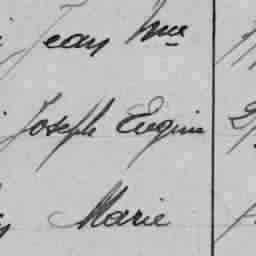 Jean Mce
Joseph Eugine
Marie